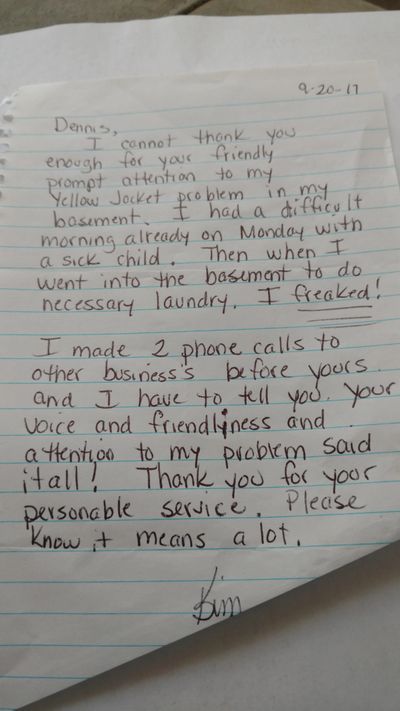 9-20-17
Dennis,
I cannot thank you
enough for your friendly
prompt attention to my
Yellow Jacket problem in my
basement. I had a difficult
morning already on Monday with
a sick child. Then when I
went into the basement to do
necessary laundry. I freaked!
I made 2 phone calls to
other business's before yours
and I have to tell you. Your
voice and friendliness and
attention to my problem said
it all! Thank you for your
personable service. Please
Know it means a lot.
Kim